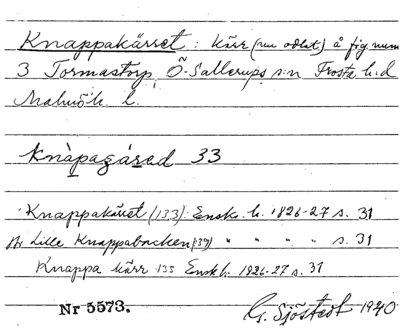 Knappakärret : kärr (nu odlat) å fig num
3 Tormastorp, Ö-Sallerups s:n Frosta h.d
Malmöh. l.
knàpagá̱red 33
Knappakärret (133) Ensk. h. 1826-27 s. 31
Lille Knappabacken (139) " " " " s. 31
Knappa kärr 135 Ensk h. 1926-27 s. 31
Nr 5573.
G. Sjöstedt 1940